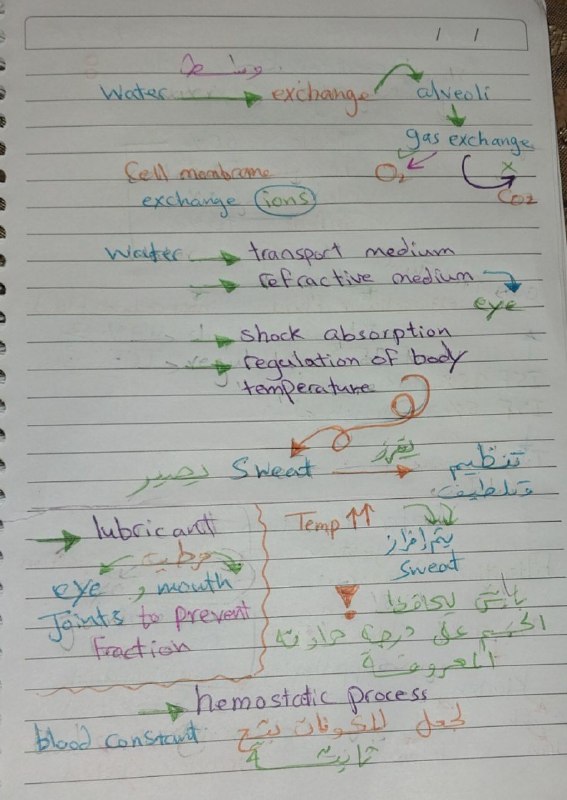 / /
Water → exchange alveoli
gas exchange
Cell membrane O2 x
exchange ions CO2
Water → transport medium
→ refractive medium
eye
→ shock absorption
→ regulation of body
temperature
يصير Sweat → يفرز تنظيم
وتلطيف
→ lubricant Temp ↑↑
يتم إفراز
eye و mouth Sweat
Joints to prevent !
Fraction الجسم على درجة حرارته
المعروفة
→ hemostatic process
blood constant
ثابتة